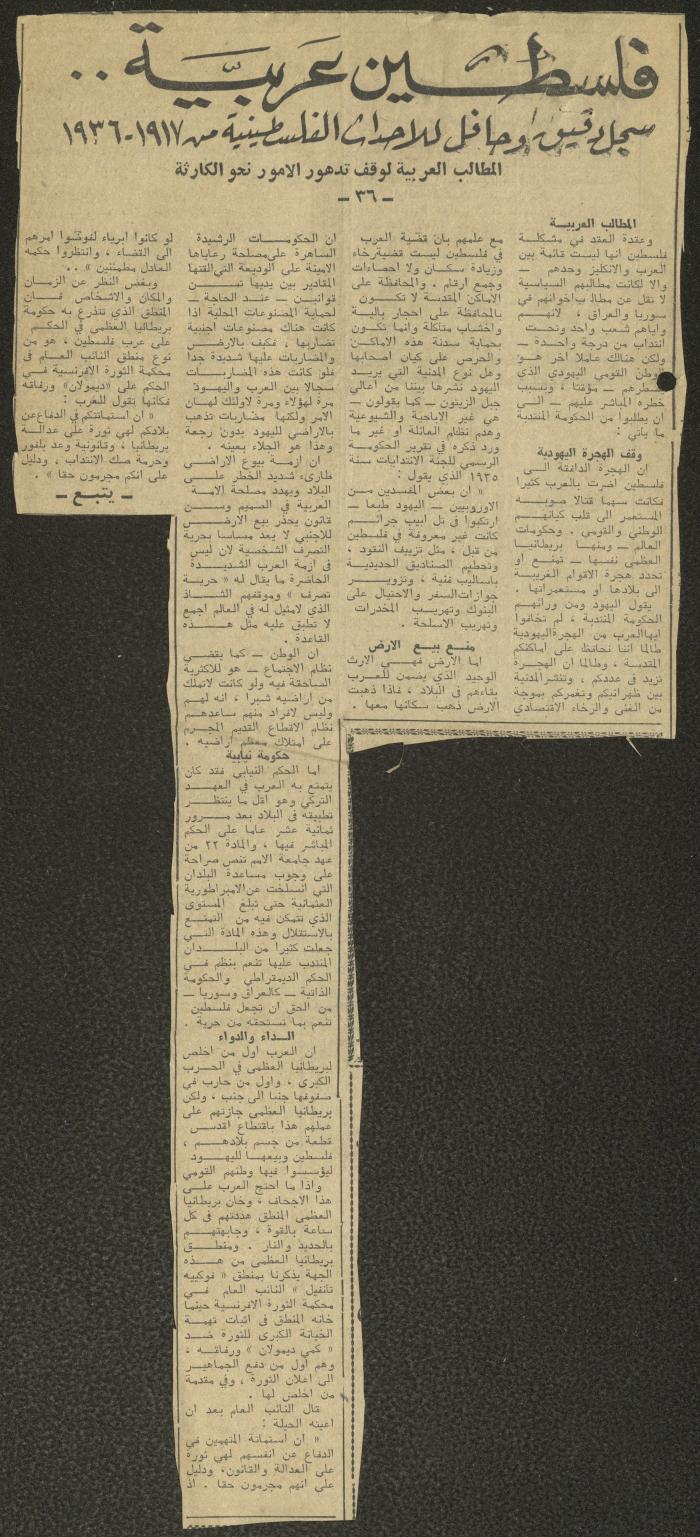 فلسطين عربية ..
سجل دقيق وحافل للاحداث الفلسطينية من ١٩١٧-١٩٣٦
المطالب العربية لوقف تدهور الامور نحو الكارثة
- ٣٦ -
المطالب العربيـة
وعقدة العقد في مشكلـة
فلسطين انها ليست قائمة بين
العرب والانكليز وحدهم ــ
والا لكانت مطالبهم السياسية
لا تقل عن مطالب اخوانهم في
سوريا والعراق ، لانهـم
واياهم شعب واحد وتحت
انتداب من درجة واحدة ــ
ولكن هنالك عاملا آخر هـو
الوطن القومي اليهودي الذي
يشطرهم ــ مؤقتا ، وبسبب
خطره المباشر عليهم ــ الـى
ان يطلبوا من الحكومة المنتدبة
ما يأتي :
وقف الهجرة اليهودية
ان الهجرة الدافقة الـى
فلسطين اضرت بالعرب كثيرا
فكانت سهما قتالا صوبـه
المستعمر الى قلب كيانهـم
الوطني والقومي . وحكومات
العالم ــ ومنهـا بريطانيـا
العظمى نفسها ــ تمنـع او
تحدد هجرة الاقوام الغريبـة
الى بلادها او مستعمراتها .
يقول اليهود ومن ورائهـم
الحكومة المنتدبة ، لم تخافوا
ايها العرب من الهجرة اليهودية
طالما اننا نحافظ على اماكنكم
المقدسة ، وطالما ان الهجـرة
تزيد في عددكم ، وتنشر المدنية
بين ظهرانيكم وتغمركم بموجة
من الغنى والرخاء الاقتصادي
مع علمهم بان قضية العرب
في فلسطين ليست قضية رخاء
وزيادة سكـان ولا احصاءات
وجمع ارقام . والمحافظة على
الأماكن المقدسة لا تكـون
بالمحافظة على احجار باليـة
واخشاب متآكلة وانما تكـون
بحماية سدنة هذه الاماكـن
والحرص على كيان اصحابها
وهل نوع المدنية التي يريـد
اليهود نشرها بيننا من أعالي
جبل الزيتون ــ كما يقولون ــ
هي غير الاباحية والشيوعية
وهدم نظام العائلة او غير ما
ورد ذكره في تقرير الحكومـة
الرسمي للجنة الانتدابات سنة
١٩٣٥ الذي يقول :
« ان بعض المفسدين مـن
الاوروبيين ــ اليهود طبعا ــ
ارتكبوا في تل ابيب جرائـم
كانت غير معروفة في فلسطين
من قبل ، مثل تزييف النقود ،
وتحطيم الصناديق الحديديـة
باساليب فنية ، وتزويـر
جوازات السفر والاحتيال على
البنوك وتهريب المخدرات
وتهريب الاسلحة .
منـع بيـع الارض
اما الارض فهـي الارث
الوحيد الذي يضمن للعـرب
بقاءهم في البلاد ، فاذا ذهبت
الارض ذهب سكانها معها .
ان الحكومـات الرشيدة
الساهرة على مصلحة رعاياها
الامينة على الوديعة التي القتها
المقادير بين يديها تسـن
قوانيـن ــ عنـد الحاجة ــ
لحماية المصنوعات المحلية اذا
كانت هناك مصنوعات اجنبية
تضاربها ، فكيف بالارض
والمضاربات عليها شديدة جدا
فلو كانت هذه المضاربـات
سجالا بين العرب واليهـود
مرة لهؤلاء ومرة لاولئك لهـان
الامر ولكنها مضاربات تذهب
بالاراضي لليهود بدون رجعة
وهذا هو الجلاء بعينه .
ان ازمـة بيوع الاراضي
طارىء شديد الخطر علـى
البلاد ويهدد مصلحة الامـة
العربية في الصميم وسـن
قانون يحذر بيع الارض
للاجنبي لا يعد مساسا بحرية
التصرف الشخصية لان ليس
في ازمة العرب الشديـدة
الحاضرة ما يقال له « حريـة
تصرف » وموقفهم الشـاذ
الذي لا مثيل له في العالم اجمع
لا تطبق عليه مثل هـذه
القاعدة .
ان الوطن ــ كما يقضـي
نظام الاجتماع ــ هو للاكثرية
الساحقة فيه ولو كانت لا تملك
من اراضيه شبرا ، انه لهـم
وليس لافراد منهم ساعدهـم
نظام الاقطاع القديم المجـرم
على امتلاك معظم اراضيه .
حكومة نيابية
اما الحكم النيابي فقد كان
يتمتع به العرب في العهـد
التركي وهو اقل ما ينتظـر
تطبيقه في البلاد بعد مـرور
ثمانية عشر عاما على الحكم
المباشر فيها ، والمادة ٢٢ من
عهد جامعة الامم تنص صراحة
على وجوب مساعدة البلدان
التي انسلخت عن الامبراطورية
العثمانية حتى تبلغ المستوى
الذي تتمكن فيه من التمتـع
بالاستقلال وهذه المادة التـي
جعلت كثيرا من البلـدان
المنتدب عليها تنعم بنظم فـي
الحكم الديمقراطي والحكومة
الذاتية ــ كالعراق وسوريا ــ
من الحق ان تجعل فلسطين
تنعم بما تستحقه من حرية .
الـداء والدواء
ان العرب اول من اخلص
لبريطانيا العظمى في الحـرب
الكبرى ، واول من حارب في
صفوفها جنبا الى جنب ، ولكن
بريطانيا العظمى جازتهم على
عملهم هذا باقتطاع اقدس
قطعة من جسم بلادهـم ،
فلسطين وبيعهـا لليهـود
ليؤسسوا فيها وطنهم القومي
واذا ما احتج العرب علـى
هذا الاجحاف ، وخان بريطانيا
العظمى المنطق هددتهم في كل
ساعة بالقوة ، وجابهتهـم
بالحديد والنار . ومنطـق
بريطانيا العظمى من هـذه
الجهة يذكرنا بمنطق « فوكييه
تانفيل » النائب العام فـي
محكمة الثورة الافرنسية حينما
خانه المنطق في اثبات تهمـة
الخيانة الكبرى للثورة ضـد
« كمي ديمولان » ورفاقـه ،
وهم اول من دفع الجماهيـر
الى اعلان الثورة ، وفي مقدمة
من اخلص لها .
قال النائب العام بعد ان
اعيته الحيلة :
« ان استماتة المتهمين في
الدفاع عن انفسهم لهي ثورة
على العدالة والقانون، ودليل
على انهم مجرمون حقا . اذ
لو كانوا ابرياء لفوضوا امرهم
الى القضاء ، وانتظروا حكمه
العادل مطمئنين » ..
وبغض النظر عن الزمـان
والمكان والاشخاص فـان
المنطق الذي تتذرع به حكومة
بريطانيا العظمى في الحكـم
على عرب فلسطين ، هو من
نوع منطق النائب العـام فـي
محكمة الثورة الافرنسية فـي
الحكم على «ديمولان» ورفاقه
فكأنها تقول للعرب :
« ان استماتتكم في الدفاع عن
بلادكم لهي ثورة على عدالـة
بريطانيا ، وقانونية وعد بلفور
وحرمة صك الانتداب ، ودليل
على انكم مجرمون حقا » .
ــ يتبـع ــ